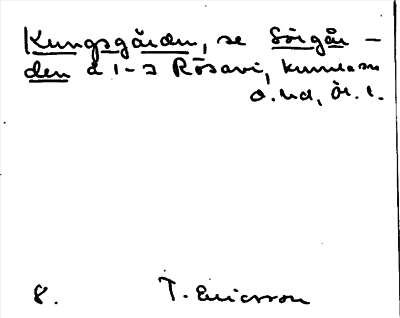 Kungsgården, se Sörgår-
den a 1-2 Rösavi, Kumla sn
o. hd, Ör. l.
8. T. Ericsson